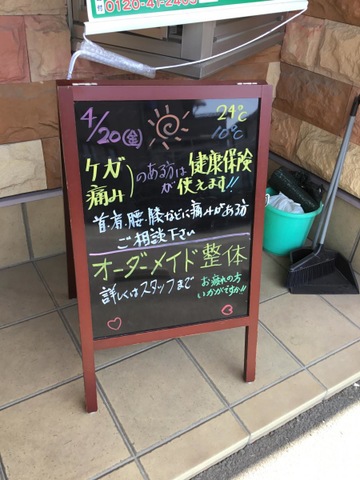 受付 0120-41-2405
4/20(金) 24℃
10℃
ケガ 痛み のある方は 健康保険
が 使えます!!
首、肩、腰、膝などに痛みがある方
ご相談下さい
オーダーメイド整体
詳しくはスタッフまで
お疲れの方
いかがですか!!